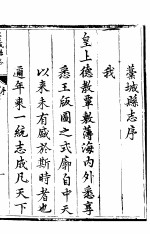 藁城縣志序
我
皇上德教覃敷薄海内外悉享
悉王版圖之式廓自中天
以來未有盛於斯時者也
邇年來一統志成凡天下